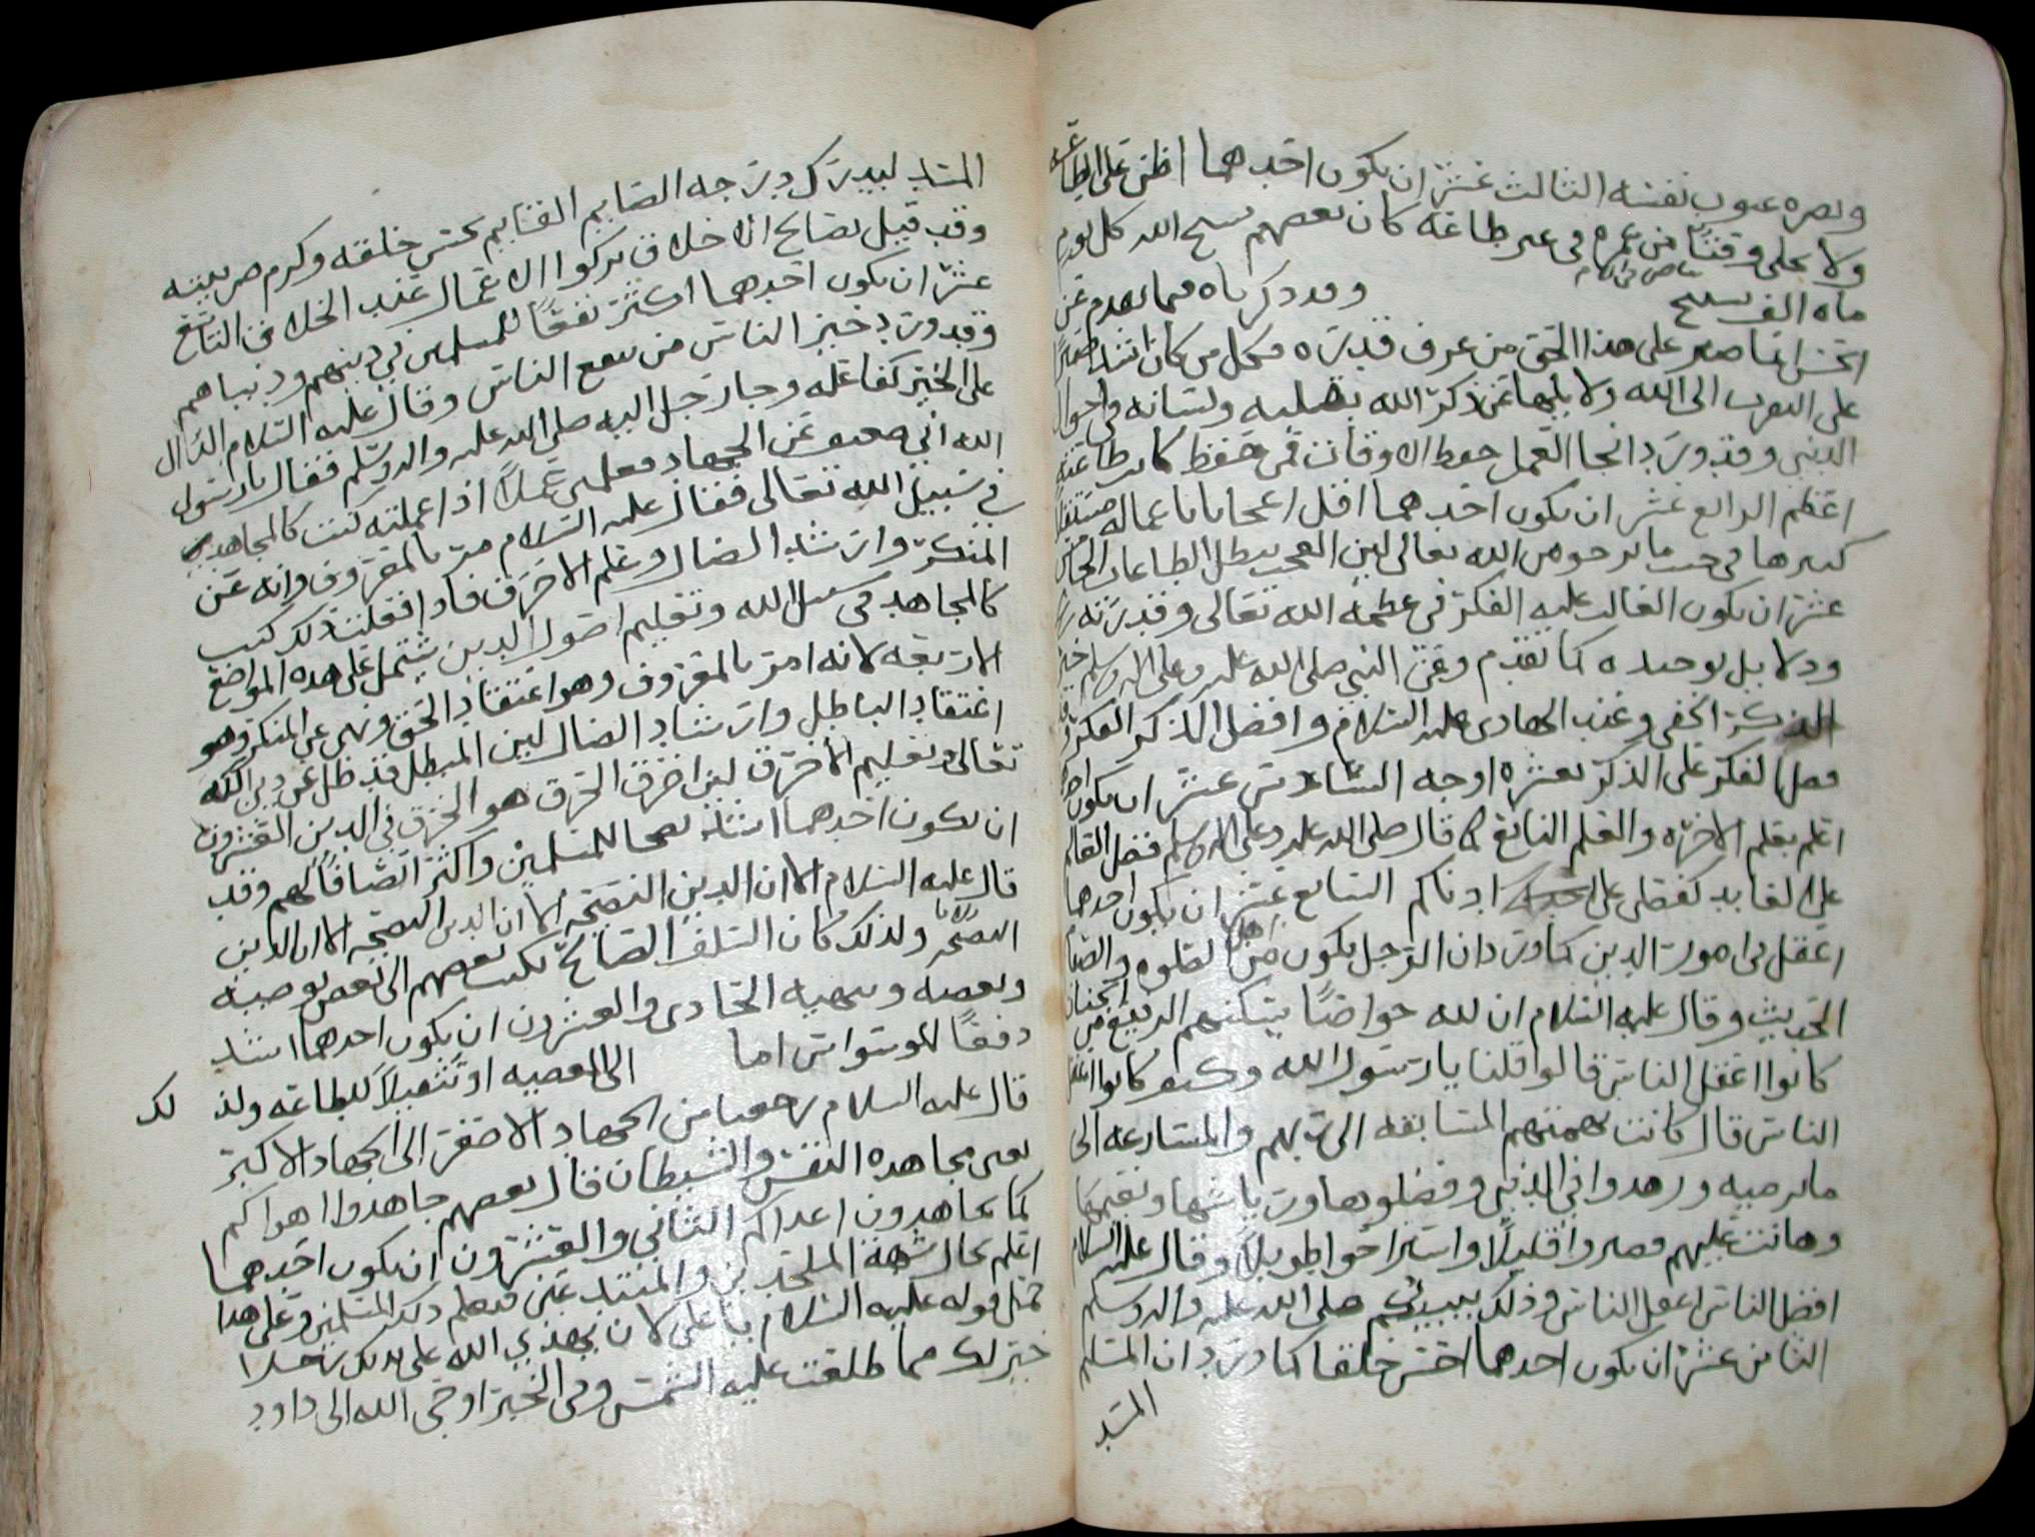 وبصره عيوب نفسه الثالث عشر ان يكون احدهما اظن على الطاعة
ولا يخلى وقتًا من عمره في غير طاعة كان بعضهم يسبح الله كل يوم
ماه الف تسبيح وقد ذكرناه فيما تقدم عن
الحسن انما صبر على هذا الحق من عرف قدره فكل من كان اشد
على التقرب الى الله ولا يلهيها عن ذكر الله بقلبه ولسانه
الدنيى وقد ورد انجا العمل حفظ الاوقات فمن حفظ كانت طاعته
اعظم الرابع عشر ان يكون احدهما اقل اعجابا باعماله
كبيرها في جنب ما يرجو من الله تعالى لين العجب يبطل الطاعات الخامس
عشر ان يكون الغالب عليه الفكر في عظمة الله تعالى وقدرته
ودلايل توحيده كما تقدم وعن النبي صلى الله عليه وعلى اله وسلم خير
الذكر الخفي وعند الهادي عليه السلام وافضل الذكر الفكر
فضل الفكر على الذكر بعشرة اوجه السادس عشر ان يكون
اعلم بعلم الاخره والعلم النافع كما قال صلى الله عليه وعلى اله وسلم فضل العالم
على العابد كفضلى على ادناكم السابع عشر ان يكون احدهما
اعقل في امور الدين كما ورد ان الرجل يكون من اهل الصلوه والصيام
الحديث وقال عليه السلام ان لله خواصًا يسكنهم الرفيع من الجنان
كانوا اعقل الناس قالوا قلنا يا رسول الله وكيف كانوا اعقل
الناس قال كانت همتهم المسابقه الى ربهم والمسارعه الى
ما يرضيه وزهدوا في الدنيى وفضلوها ورياشها ونعيمها
وهانت عليهم فصبروا قليلًا واستراحوا طويلًا وقال عليه السلام
افضل الناس اعقل الناس وذلك نبيكم صلى الله عليه واله وسلم
الثامن عشر ان يكون احدهما احسن خلقا كما ورد ان المسلم
المسد
المسدد ليدرك درجه الصايم القايم بحسن خلقه وكرم ضريبته
وقد قيل نصايح الاخلاق تركوا الاعمال عند الخلاف التاسع
عشر ان يكون احدهما اكثر نفعًا للمسلمين في دينهم ودنياهم
وقد ورد خير الناس من ينفع الناس وقال عليه السلام الدال
على الخير كفاعله وجا رجل اليه صلى الله عليه واله وسلم فقال يا رسول
الله اني ضعيف عن الجهاد فعلمني عملًا اذا عملته كنت كالمجاهد
في سبيل الله تعالى فقال عليه السلام مر بالمعروف وانه عن
المنكر وارشد الضال وعلم الاخرق فاذا فعلت ذلك كنت
كالمجاهد في سبيل الله وتعليم اصول الدين يشتمل على هذه المواضع
الاربعه لانه امر بالمعروف وهو اعتقاد الحق ونهى عن المنكر وهو
اعتقاد الباطل وارشاد الضال لين المبطل قد ظل عن دين الله
تعالى وتعليم الاخرق لين اخرق الخرق هو الخرق في الدين العشرون
ان يكون احدهما اشد نصحا للمسلمين واكثر انصافًا لهم وقد
قال عليه السلام الا ان الدين النصيحه الا ان الدين النصيحه الا ان الدين
النصيحه ولذلك كان السلف الصالح يكتب بعضهم الى بعض بوصيته
وبعضه وينبهه الحادى والعشرون ان يكون احدهما اشد
دفعًا للوسواس اما الى المعصيه او تثقيلًا للطاعه ولذلك
قال عليه السلام رجعنا من الجهاد الاصغر الى الجهاد الاكبر
يعنى مجاهده النفس والشيطان قال بعضهم جاهدوا اهواكم
كما تجاهدون اعداكم الثاني والعشرون ان يكون احدهما
اعلم بحال شبهة الملحدين والمبتدعين فيعلم ذلك المسلمين وعلى هذا
حمل قوله عليه السلام يا على لان يهدي الله على يديك رجلا
خير لك مما طلعت عليه الشمس وفى الخبر اوحى الله الى داود